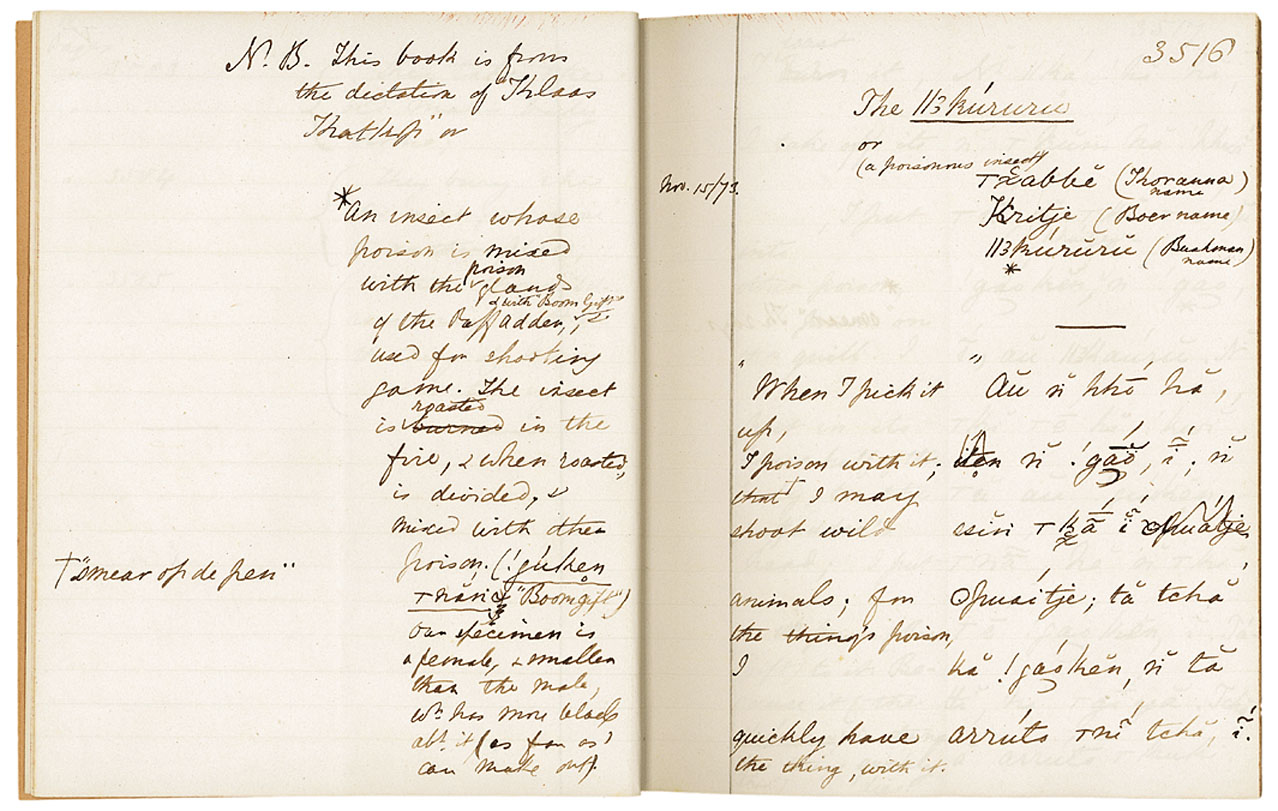 N. B. This book is from
the dictation of "Klaas
Katkop" or
*An insect whose
poison is mixed
with the poison glands
& with "Boom Gift"
of the Puff adder,
used for shooting
game. The insect
is burned roasted in the
fire, & when roasted,
is divided, &
mixed with other
poison. (!gúïken
"Boomgift")
Our specimen is
a female, & smaller
than the male,
wh. has more black
abt. it (as far as I
can make out).
†"smear op de pen"
3516
The ǁ3kúrurŭ
or
(a poisonous insect)
Nov. 15/73.
(Koranna name)
Kritje (Boer name)
ǁ3kúrŭrŭ (Bushman name)
*
"When I pick it
up,
I poison with it;
that† I may
shoot wild
animals; for
the things poison,
I
quickly have
the thing, with it.
"Aŭ ň hhō hă,
ň !gāō, ī; ň
Opuaitje; tă tchă
kă !gáŏkĕn, ň tă
arrúto tchă, ī.